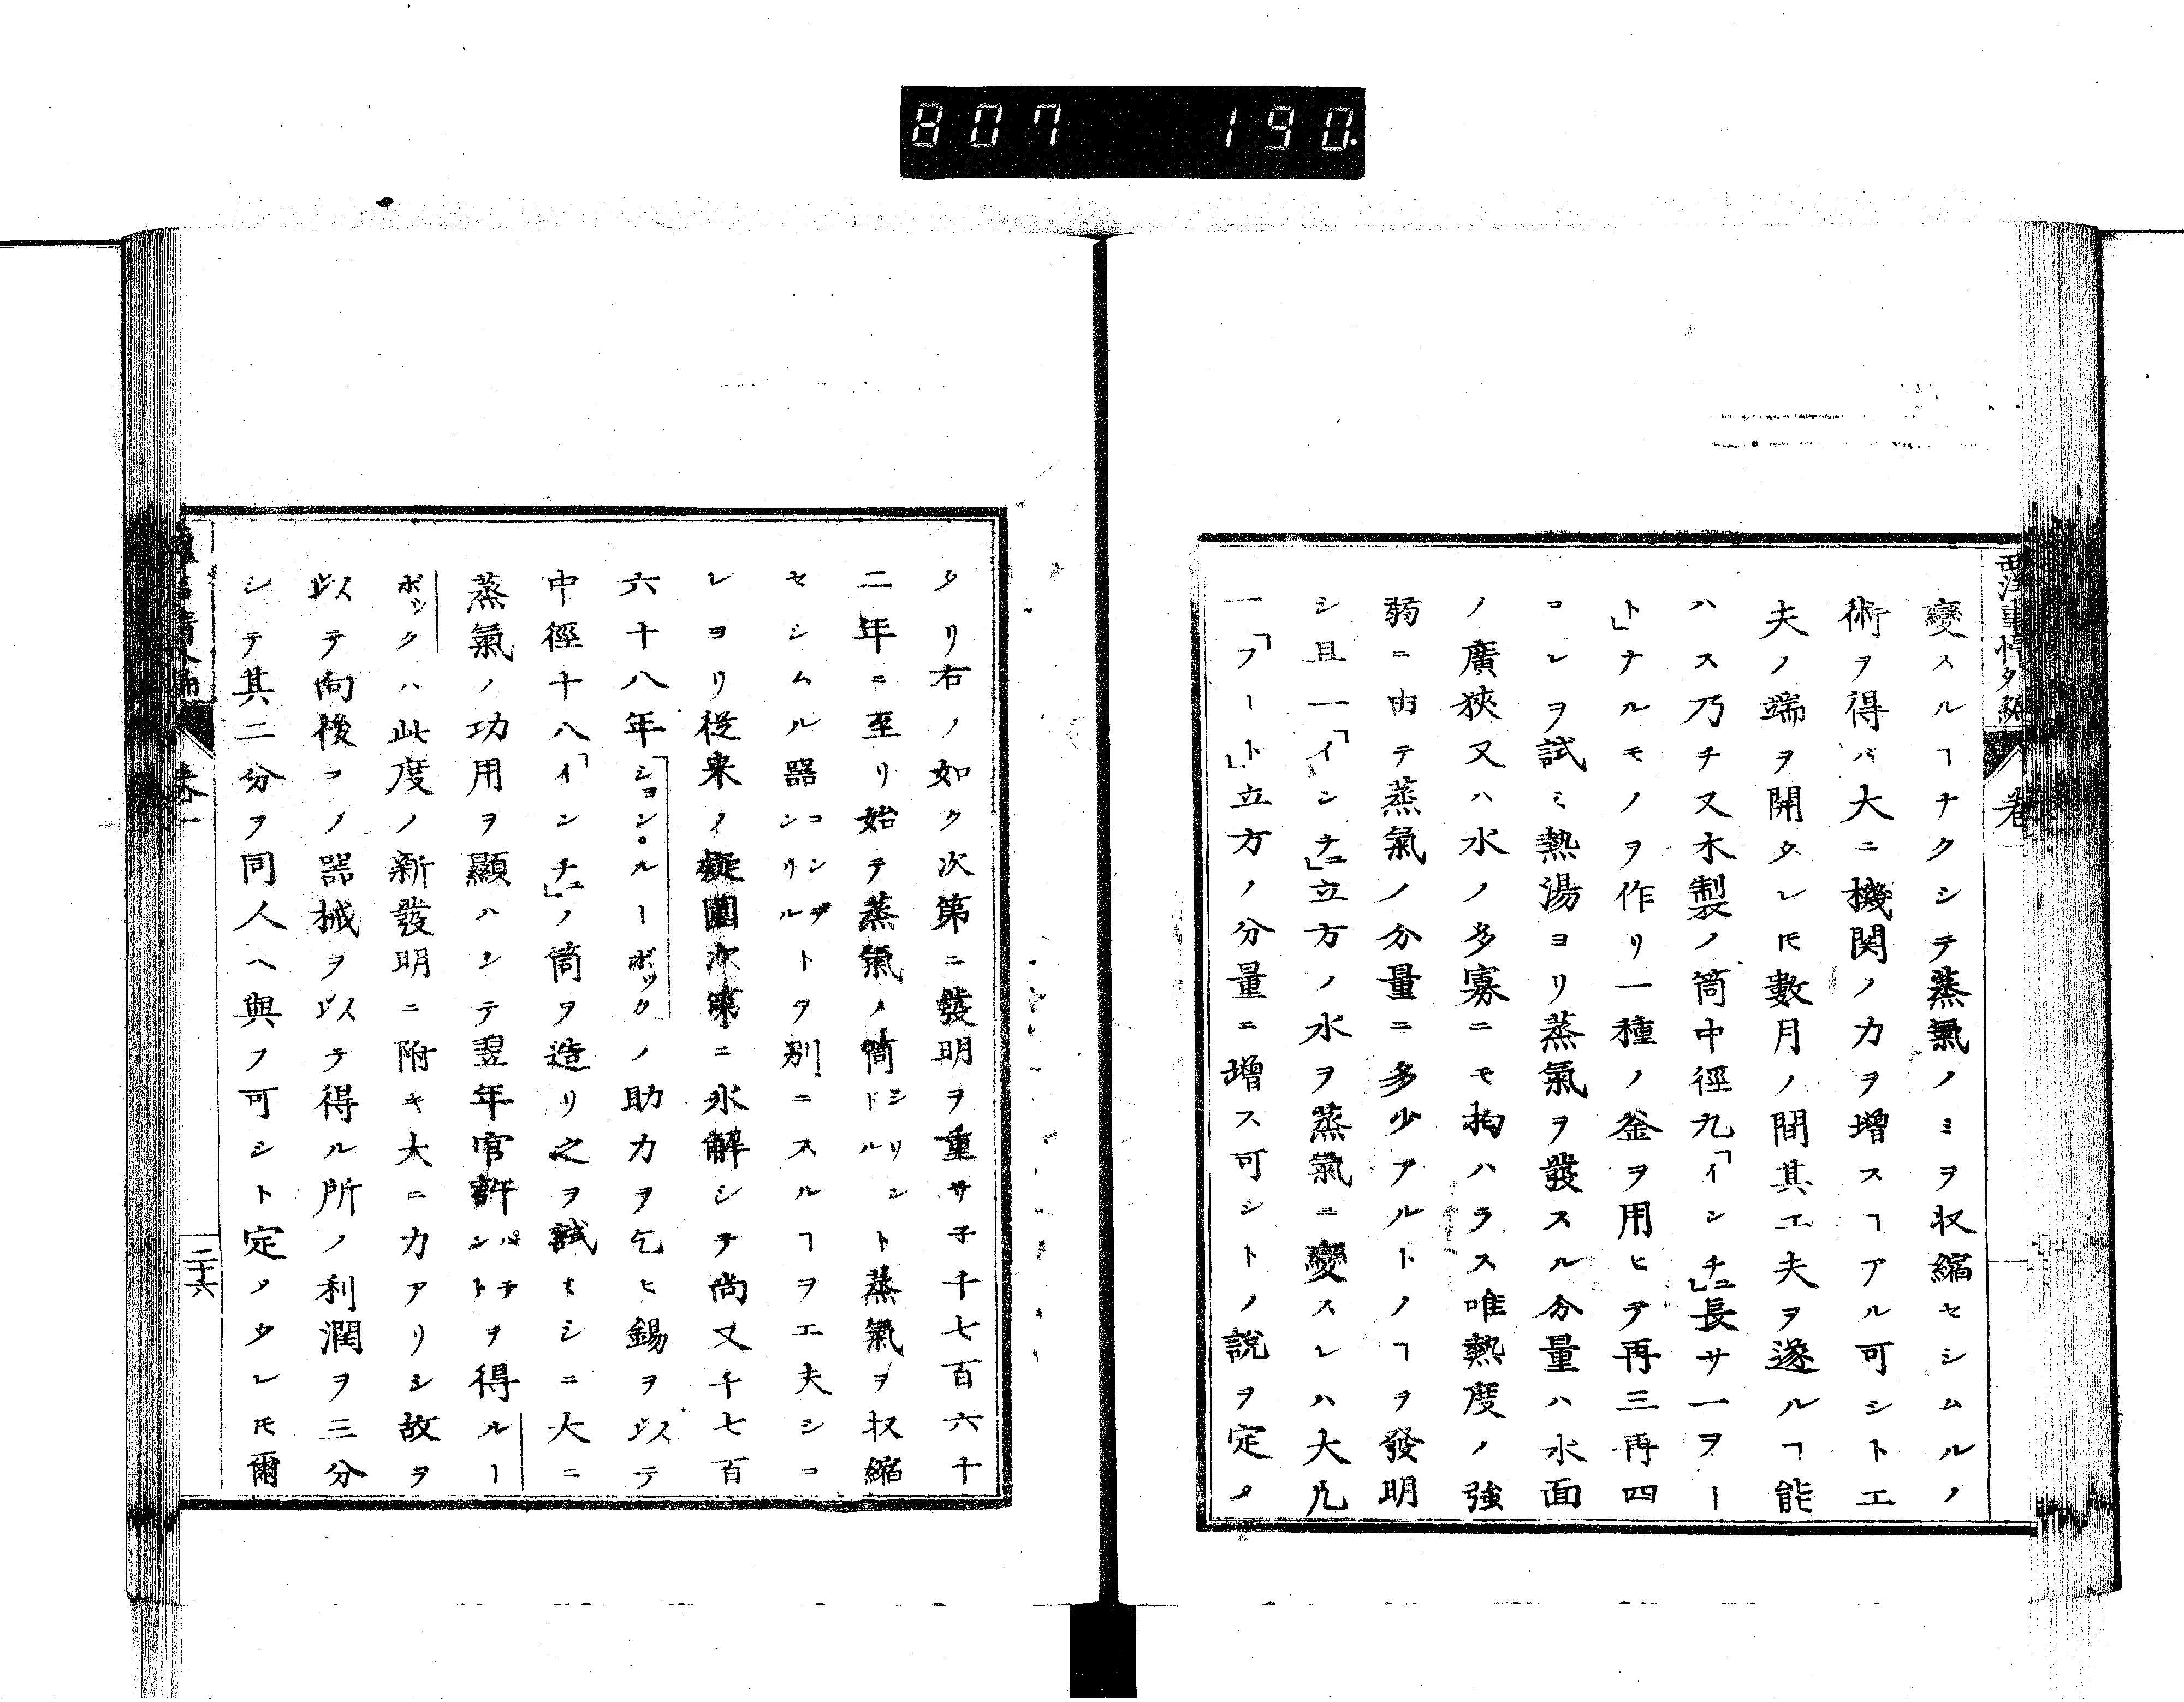 807 190.
變スルヿナクシテ蒸氣ノミヲ収縮セシムルノ
術ヲ得バ大ニ機関ノ力ヲ増スヿアル可シト工
夫ノ端ヲ開タレ𪜈數月ノ間其工夫ヲ遂ルヿ能
ハス乃チ又木製ノ筒中徑九「インチュ」長サ一ヲー
ト」ナルモノヲ作リ一種ノ釜ヲ用ヒテ再三再四
コレヲ試ミ熱湯ヨリ蒸氣ヲ發スル分量ハ水面
ノ廣狹又ハ水ノ多寡ニモ拘ハラス唯熱度ノ強
弱ニ由テ蒸氣ノ分量ニ多少アルトノヿヲ發明
シ且一「インチュ」立方ノ水ヲ蒸氣ニ變スレハ大凡
一「フート」立方ノ分量ニ增ス可シトノ說ヲ定メ
タリ右ノ如ク次第ニ發明ヲ重サ子千七百六十
二年ニ至リ始テ蒸氣ノ筒シリンドルト蒸氣ヲ収縮
セシムル器コンデンシリルトヲ別ニスルヿヲ工夫シコ
レヨリ従来ノ疑團次第ニ氷解シテ尚又千七百
六十八年「ション・ルーボックノ助力ヲ乞ヒ錫ヲ以テ
中徑十八「インチュ」ノ筒ヲ造リ之ヲ試ミシニ大ニ
蒸氣ノ功用ヲ顯ハシテ翌年官許パテントヲ得ルー
ボックハ此度ノ新發明ニ附キ大ニ力アリシ故ヲ
以テ向後コノ器械ヲ以テ得ル所ノ利潤ヲ三分
シテ其二分ヲ同人ヘ與フ可シト定メタレ𪜈爾
二十六